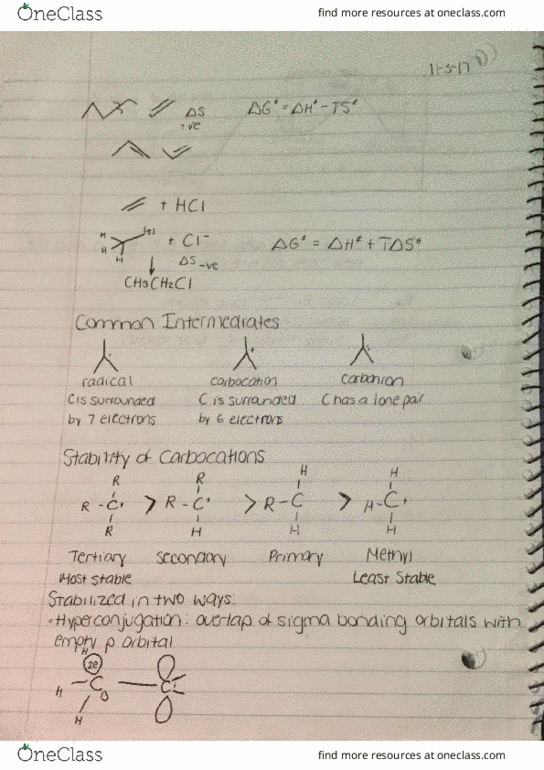 OneClass
find more resources at oneclass.com
11-5-17 ①
ΔS ΔG‡ = ΔH‡ - TS‡
+ve
+ HCl
H
H + Cl⁻ ΔG‡ = ΔH‡ + TΔS‡
H
↓ ΔS -ve
CH3CH2Cl
Common Intermediates
radical carbocation carbanion
C is surrounded C is surrounded C has a lone pair
by 7 electrons by 6 electrons
Stability of Carbocations
R R H H
R - C+ > R - C+ > R - C > H - C+
R H H H
Tertiary Secondary Primary Methyl
Most stable Least Stable
Stabilized in two ways:
• Hyperconjugation: overlap of sigma bonding orbitals with
empty p orbital
H
2e
H - C — C
H
OneClass
find more resources at oneclass.com